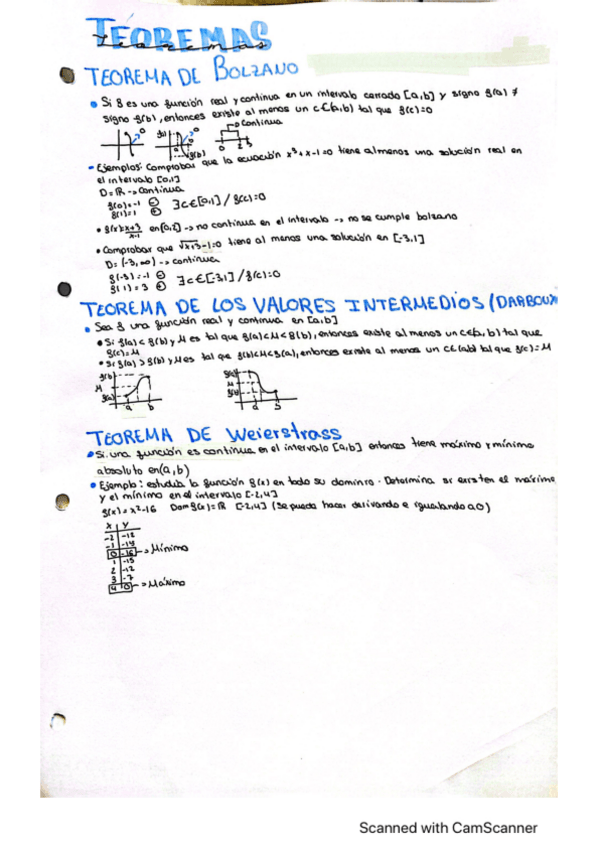 TEOREMAS
Teoremas
TEOREMA DE BOLZANO
• Si f es una función real y continua en un intervalo cerrado [a,b] y signo f(a) ≠
signo f(b), entonces existe al menos un c∈(a,b) tal que f(c)=0
Continua
- Ejemplos: Comprobar que la ecuación x³+x-1=0 tiene al menos una solución real en
el intervalo [0,1]
D=ℝ -> continua
f(0)=-1 ⊖
f(1)=1 ⊕
∃c∈[0,1] / f(c)=0
• f(x)=x+3/x-1 en [0,2] -> no continua en el intervalo -> no se cumple bolzano
• Comprobar que √x+3-1=0 tiene al menos una solución en [-3,1]
D=(-3,∞) -> continua
f(-3)=-1 ⊖
f(1)=3 ⊕
∃c∈[-3,1] / f(c)=0
TEOREMA DE LOS VALORES INTERMEDIOS (DARBOUX)
• Sea f una función real y continua en [a,b]
• Si f(a)<f(b) y M es tal que f(a)<M<f(b), entonces existe al menos un c∈(a,b) tal que
f(c)=M
• Si f(a)>f(b) y M es tal que f(b)<M<f(a), entonces existe al menos un c∈(a,b) tal que f(c)=M
f(b)
M
f(a)
a b
f(a)
M
f(b)
a b
TEOREMA DE Weierstrass
• Si una función es continua en el intervalo [a,b] entonces tiene máximo y mínimo
absoluto en (a,b)
• Ejemplo: estudia la función f(x) en todo su dominio. Determina si existen el máximo
y el mínimo en el intervalo [-2,4]
f(x)=x²-16 Dom f(x)=ℝ [-2,4] (Se puede hacer derivando e igualando a 0)
x y
-2 -12
-1 -14
0 -16 -> Mínimo
1 -15
2 -12
3 -7
4 0 -> Máximo
Scanned with CamScanner